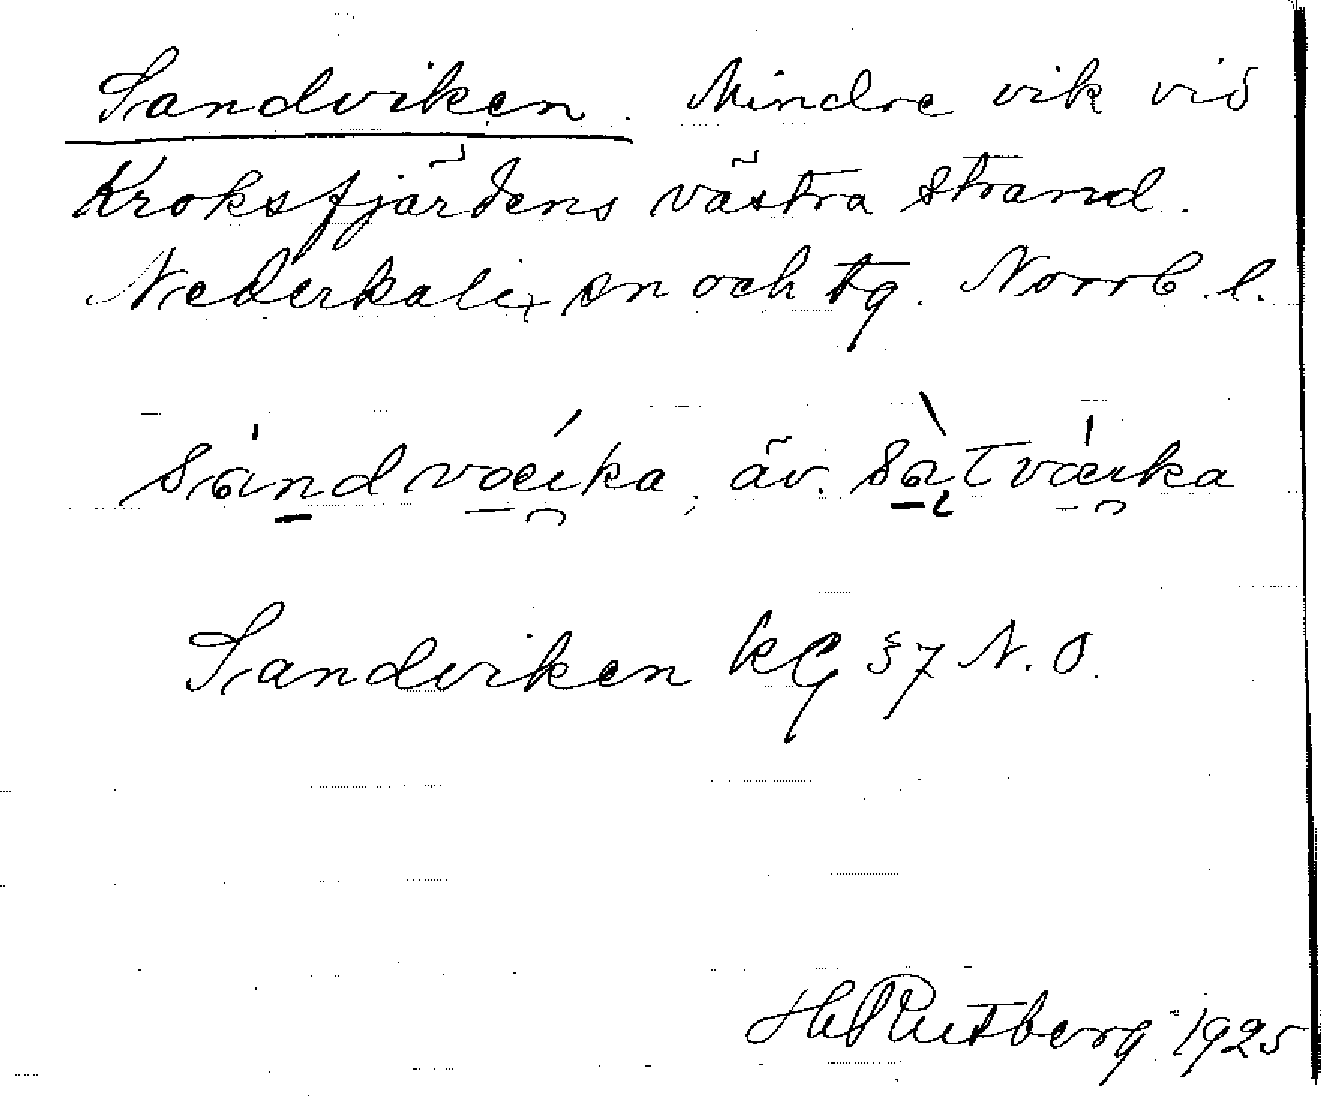 Sandviken. Mindre vik vid
Kroksfjärdens västra strand.
Nederkalix sn och tg. Norrb. l.
sàndvæika, äv. sàtvæika
Sandviken kG 37 N.O.
H Rutberg 1925